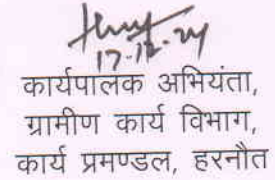 17-12-24
कार्यपालक अभियंता,
ग्रामीण कार्य विभाग,
कार्य प्रमण्डल, हरनौत